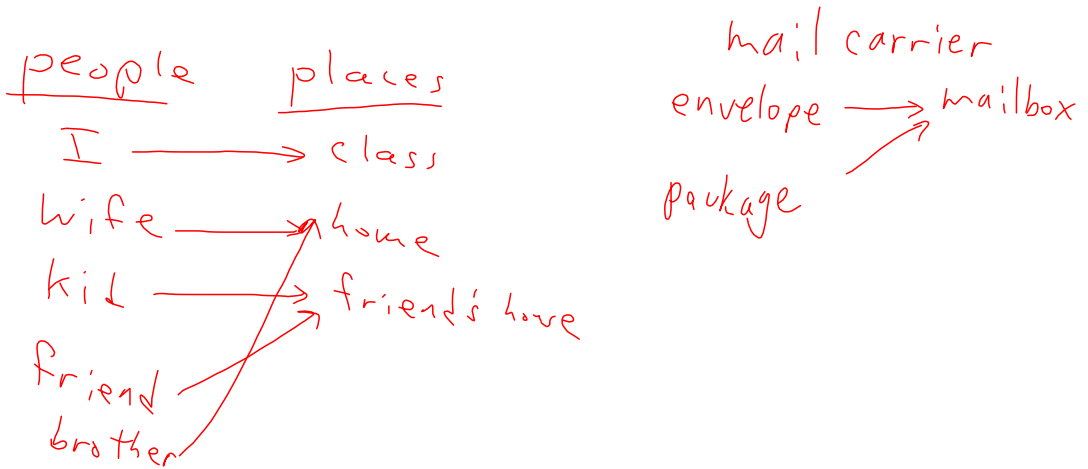 people places
I class
wife home
kid friend's house
friend
brother
mail carrier
envelope mailbox
package